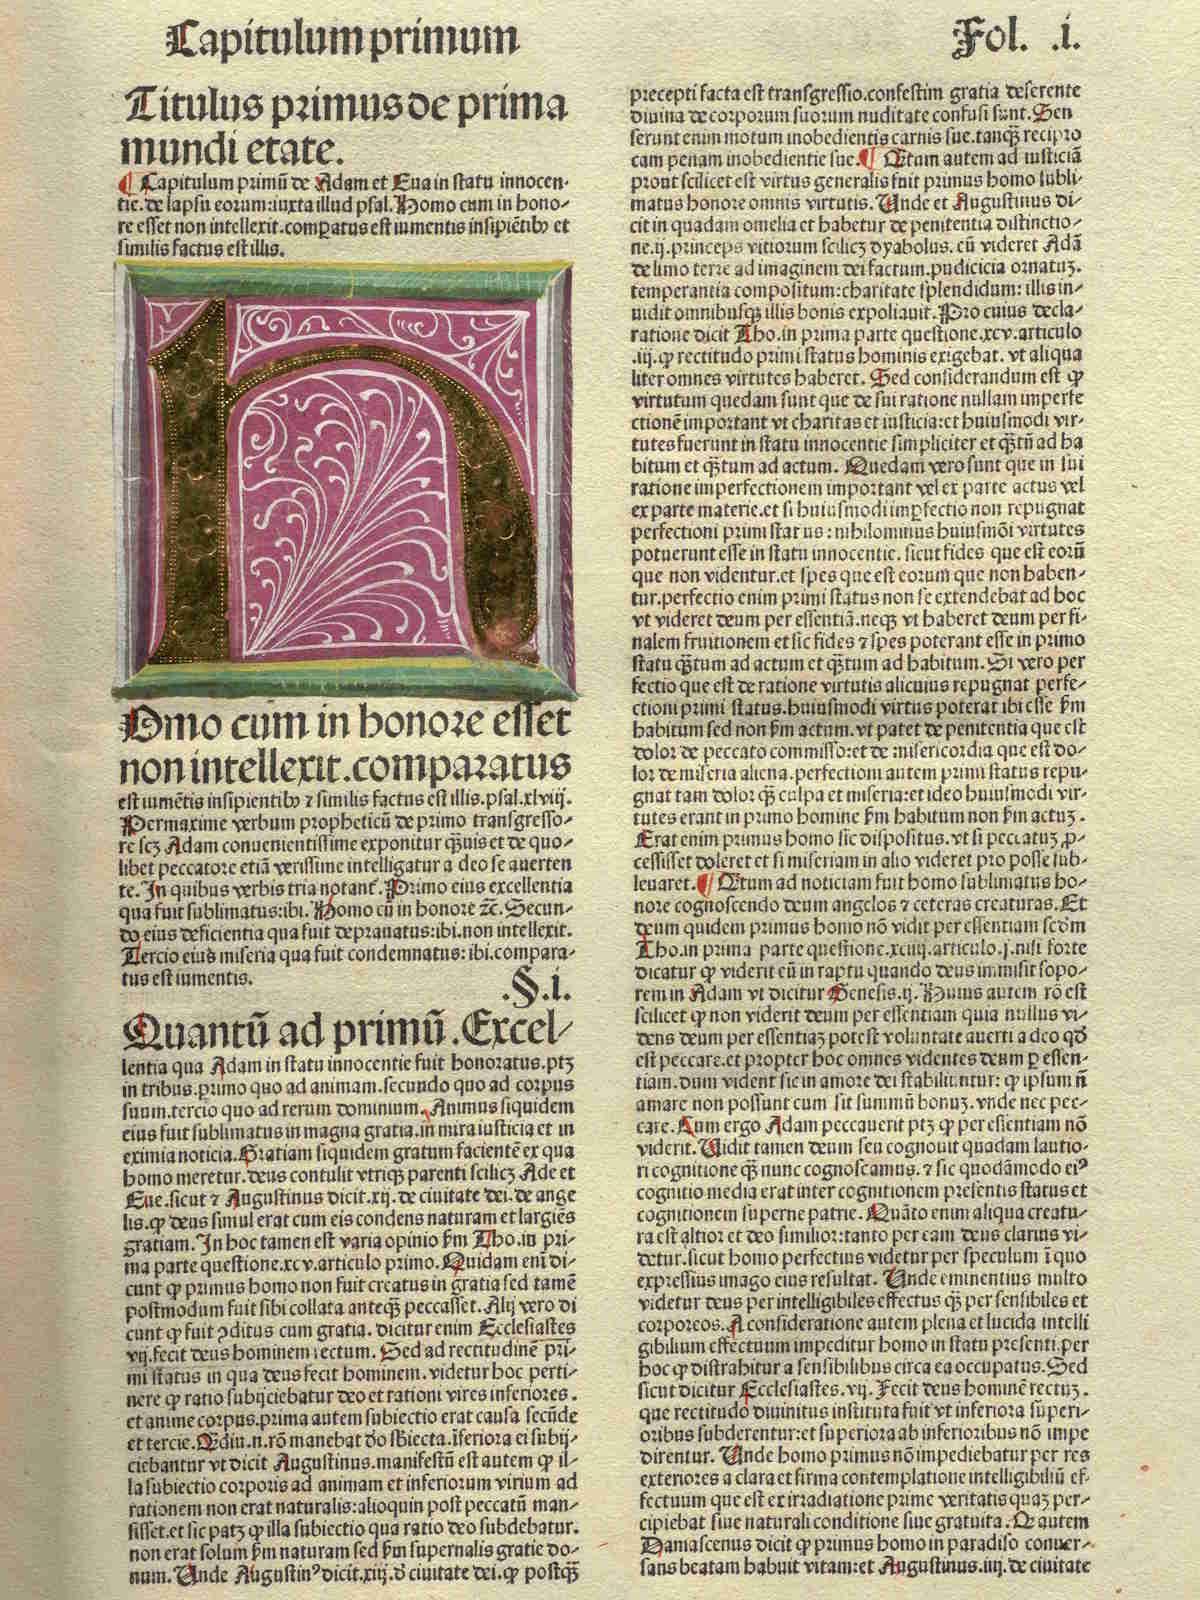 Capitulum primum
Fol. .i.
Titulus primus de prima
mundi etate.
¶ Capitulum primū de Adam et Eua in statu innocen-
tie. de lapsu eorum: iuxta illud psal. Homo cum in hono-
re esset non intellexit. comꝑatus est iumentis insipiētibꝰ et
similis factus est illis.
h
Omo cum in honore esset
non intellexit. comparatus
est iumētis insipientibꝰ ⁊ similis factus est illis. psal. xlviij.
Permaxime verbum propheticū de primo transgresso-
re scꝫ Adam conuenientissime exponitur qͣuis et de quo-
libet peccatore etiā verissime intelligatur a deo se auerten
te. In quibus verbis tria notant̄. Primo eius excellentia
qua fuit sublimatus: ibi. Homo cū in honore ⁊c̄. Secun-
do eius deficientia qua fuit deprauatus: ibi. non intellexit.
Tercio eius miseria qua fuit condemnatus: ibi. compara-
tus est iumentis.
.§.i.
Quantū ad primū. Excel-
lentia qua Adam in statu innocentie fuit honoratus. ptꝫ
in tribus. primo quo ad animam. secundo quo ad corpus
suum. tercio quo ad rerum dominium. Animus siquidem
eius fuit sublimatus in magna gratia. in mira iusticia et in
eximia noticia. Gratiam siquidem gratum facientē ex qua
homo meretur. deus contulit vtriqꝫ parenti scilicꝫ Ade et
Eue. sicut ⁊ Augustinus dicit. xij. de ciuitate dei. de ange
lis. ꝙ deus simul erat cum eis condens naturam et largiēs
gratiam. In hoc tamen est varia opinio ẜm Tho. in pri-
ma parte questione. xcv. articulo primo. Quidam eni di-
cunt ꝙ primus homo non fuit creatus in gratia sed tamē
postmodum fuit sibi collata anteqͣꝫ peccasset. Alij vero di
cunt ꝙ fuit ꝯditus cum gratia. dicitur enim Ecclesiastes
vij. fecit deus hominem rectum. Sed ad rectitudinē pri-
mi status in qua deus fecit hominem. videtur hoc perti-
nere ꝙ ratio subijciebatur deo et rationi vires inferiores.
et anime corpus. prima autem subiectio erat causa secūde
et tercie. Qdiu. n. rō manebat dō sbiecta. īferiora ei subij-
ciebantur vt dicit Augustinus. manifestū est autem ꝙ il-
la subiectio corporis ad animam et inferiorum virium ad
rationem non erat naturalis: alioquin post peccatū man-
sisset. et sic patꝫ ꝙ illa subiectio qua ratio deo subdebatur.
non erat solum ẜm naturam sed ẜm supernalis gratie do-
num. Unde Augustinꝰ dicit. xiij. d̄ ciuitate dei. ꝙ postqͣꝫ
precepti facta est transgressio. confestim gratia deserente
diuina de corporum suorum nuditate confusi sunt. Sen
serunt enim motum inobedientis carnis sue. tanqͣꝫ recipro
cam penam inobedientie sue. ¶ Qtum autem ad iusticiā
prout scilicet est virtus generalis fuit primus homo subli-
matus honore omnis virtutis. Unde et Augustinus di-
cit in quadam omelia et habetur de penitentia distinctio-
ne. ij. princeps vitiorum scilicꝫ dyabolus. cū videret Adā
de limo terre ad imaginem dei factum. pudicicia ornatuꝫ.
temperantia compositum: charitate splendidum: illis in-
uidit omnibusqꝫ illis bonis expoliauit. Pro cuius decla-
ratione dicit Tho. in prima parte questione. xcv. articulo
.iij. ꝙ rectitudo primi status hominis exigebat. vt aliqua
liter omnes virtutes haberet. Sed considerandum est ꝙ
virtutum quedam sunt que de sui ratione nullam imperfe
ctionē important vt charitas et iusticia: et huiusmodi vir-
tutes fuerunt in statu innocentie simpliciter et qͣꝫtū ad ha
bitum et qͣꝫtum ad actum. Quedam vero sunt que in sui
ratione imperfectionem important vel ex parte actus vel
ex parte materie. et si huiusmodi imꝑfectio non repugnat
perfectioni primi status: nihilominus huiusmōi virtutes
potuerunt esse in statu innocentie. sicut fides que est eorū
que non videntur. et spes que est eorum que non haben-
tur. perfectio enim primi status non se extendebat ad hoc
vt videret deum per essentiā. neqꝫ vt haberet deum per fi-
nalem fruitionem et sic fides ⁊ spes poterant esse in primo
statu qͣꝫtum ad actum et qͣꝫtum ad habitum. Si vero per
fectio que est de ratione virtutis alicuius repugnat perfe-
ctioni primi status. huiusmodi virtus poterat ibi esse ẜm
habitum sed non ẜm actum. vt patet de penitentia que est
dolor de peccato commisso: et de misericordia que est do-
lor de miseria aliena. perfectioni autem primi status repu-
gnat tam dolor qͣꝫ culpa et miseria: et ideo huiusmodi vir-
tutes erant in primo homine ẜm habitum non ẜm actuꝫ.
Erat enim primus homo sic dispositus. vt si peccatuꝫ p̱-
cessisset doleret et si miseriam in alio videret pro posse sub-
leuaret. ¶ Qtum ad noticiam fuit homo sublimatus ho-
nore cognoscendo deum angelos ⁊ ceteras creaturas. Et
deum quidem primus homo nō vidit per essentiam sedm̄
Tho. in prima parte questione. xciiij. articulo. j. nisi forte
dicatur ꝙ viderit eū in raptu quando deus immisit sopo-
rem in Adam vt dicitur Genesis. ij. Huius autem rō est
scilicet ꝙ non viderit deum per essentiam quia nullus vi-
dens deum per essentiaꝫ potest voluntate auerti a deo qd̄
est peccare. et propter hoc omnes videntes deum ꝑ essen-
tiam. dum vident sic in amore dei stabiliuntur: ꝙ ipsum n̄
amare non possunt cum sit summū bonuꝫ. vnde nec pec-
care. Cum ergo Adam peccauerit ptꝫ ꝙ per essentiam nō
viderit. Uidit tamen deum seu cognouit quadam lautio-
ri cognitione qͣꝫ nunc cognoscamus. ⁊ sic quodāmodo eiꝰ
cognitio media erat inter cognitionem presentis status et
cognitionem superne patrie. Quāto enim aliqua creatu-
ra est altior et deo similior: tanto per eam deus clarius vi-
detur. sicut homo perfectius videtur per speculum ī quo
expressius imago eius resultat. Unde eminentius multo
videtur deus per intelligibiles effectus qͣꝫ per sensibiles et
corporeos. A consideratione autem plena et lucida intelli
gibilium effectuum impeditur homo in statu presenti. per
hoc ꝙ distrahitur a sensibilibus circa ea occupatus. Sed
sicut dicitur Ecclesiastes. vij. Fecit deus hominē rectuꝫ.
que rectitudo diuinitus instituta fuit vt inferiora superi-
oribus subderentur: et superiora ab inferioribus nō impe
direntur. Unde homo primus nō impediebatur per res
exteriores a clara et firma contemplatione intelligibiliū ef-
fectuum que est ex irradiatione prime veritatis quaꝫ per-
cipiebat siue naturali conditione siue gratuita. Q autem
Damascenus dicit ꝙ primus homo in paradiso conuer-
sans beatam habuit vitam: et Augustinus. iiij. de ciuitate